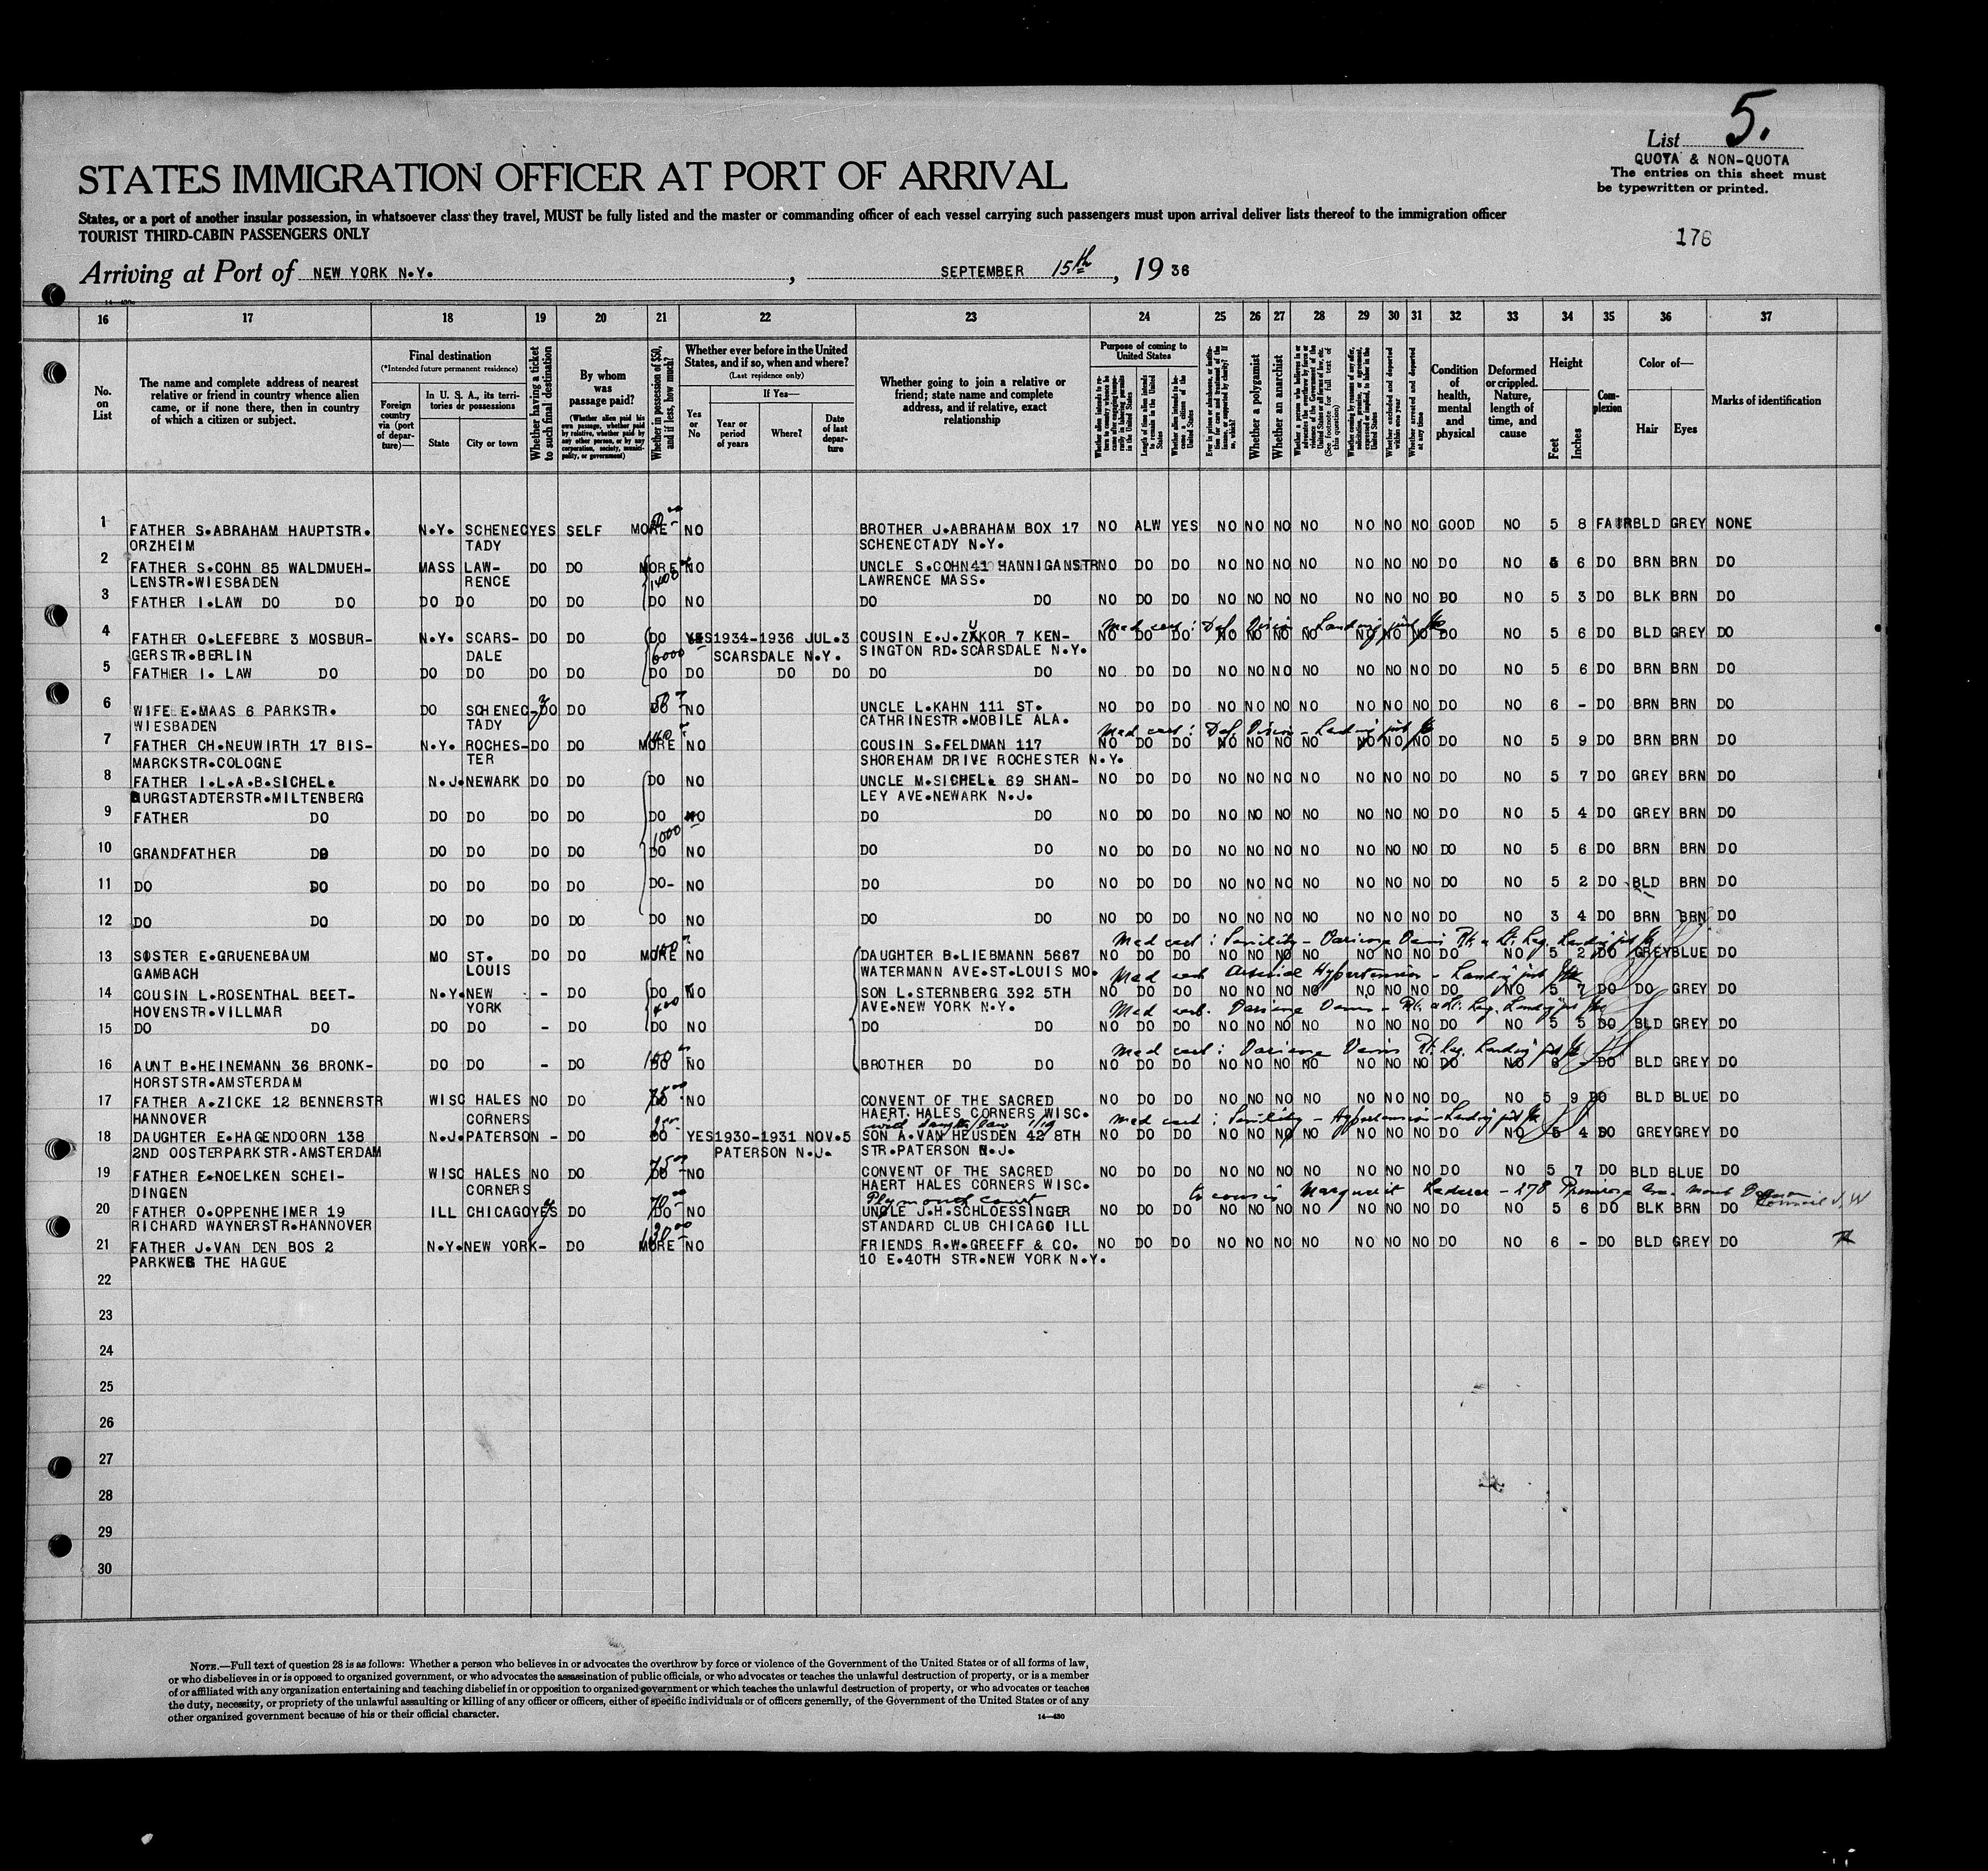 List 5.
QUOTA & NON-QUOTA
The entries on this sheet must
be typewritten or printed.
STATES IMMIGRATION OFFICER AT PORT OF ARRIVAL
States, or a port of another insular possession, in whatsoever class they travel, MUST be fully listed and the master or commanding officer of each vessel carrying such passengers must upon arrival deliver lists thereof to the immigration officer
TOURIST THIRD-CABIN PASSENGERS ONLY
176
Arriving at Port of NEW YORK N.Y. , SEPTEMBER 15th , 19 36
16 17 18 19 20 21 22 23 24 25 26 27 28 29 30 31 32 33 34 35 36 37
No. on List
The name and complete address of nearest relative or friend in country whence alien came, or if none there, then in country of which a citizen or subject.
Final destination
(*Intended future permanent residence)
Foreign country via (port of departure)—
In U. S. A., its territories or possessions
State
City or town
Whether having a ticket to such final destination
By whom was passage paid?
(Whether alien paid his own passage, whether paid by relative, whether paid by any other person, or by any corporation, society, municipality, or government)
Whether in possession of $50, and if less, how much?
Whether ever before in the United States, and if so, when and where?
(Last residence only)
If Yes—
Yes or No
Year or period of years
Where?
Date of last departure
Whether going to join a relative or friend; state name and complete address, and if relative, exact relationship
Purpose of coming to United States
Length of time alien intends to remain in the United States
Whether alien intends to become a citizen of the United States
Whether a polygamist
Whether an anarchist
(See footnote for full text of this question)
Whether excluded and deported within one year
Whether arrested and deported at any time
Condition of health, mental and physical
Deformed or crippled. Nature, length of time, and cause
Height
Feet
Inches
Complexion
Color of—
Hair
Eyes
Marks of identification
1 FATHER S.ABRAHAM HAUPTSTR. N.Y. SCHENEC YES SELF MORE NO BROTHER J.ABRAHAM BOX 17 NO ALW YES NO NO NO NO NO NO NO GOOD NO 5 8 FAIR BLD GREY NONE
ORZHEIM TADY SCHENECTADY N.Y.
2 FATHER S.COHN 85 WALDMUEH- MASS LAW- DO DO MORE NO UNCLE S.COHN 41 HANNIGANSTR NO DO DO NO NO NO NO NO NO NO DO NO 5 6 DO BRN BRN DO
LENSTR.WIESBADEN RENCE 1400 LAWRENCE MASS.
3 FATHER I.LAW DO DO DO DO DO DO DO NO DO DO NO DO DO NO NO NO NO NO NO NO DO NO 5 3 DO BLK BRN DO
Med cert : Def Vision - Landing
4 FATHER O.LEFEBRE 3 MOSBUR- N.Y. SCARS- DO DO DO YES 1934-1936 JUL.3 COUSIN E.J.ZUKOR 7 KEN- NO DO DO NO NO NO NO NO NO NO DO NO 5 6 DO BLD GREY DO
GERSTR.BERLIN DALE 6000 SCARSDALE N.Y. SINGTON RD.SCARSDALE N.Y.
5 FATHER I. LAW DO DO DO DO DO DO DO DO DO DO DO NO DO DO NO NO NO NO NO NO NO DO NO 5 6 DO BRN BRN DO
6 WIFE E.MAAS 6 PARKSTR. DO SCHENEC- DO DO NO UNCLE L.KAHN 111 ST. NO DO DO NO NO NO NO NO NO NO DO NO 6 - DO BRN BRN DO
WIESBADEN TADY CATHRINESTR.MOBILE ALA.
Med cert : Def Vision - Landing
7 FATHER CH.NEUWIRTH 17 BIS- N.Y. ROCHES- DO DO MORE NO COUSIN S.FELDMAN 117 NO DO DO NO NO NO NO NO NO NO DO NO 5 9 DO BRN BRN DO
MARCKSTR.COLOGNE TER SHOREHAM DRIVE ROCHESTER N.Y.
8 FATHER I.L.A.B.SICHEL. N.J. NEWARK DO DO DO NO UNCLE M.SICHEL. 69 SHAN- NO DO DO NO NO NO NO NO NO NO DO NO 5 7 DO GREY BRN DO
BURGSTADTERSTR.MILTENBERG LEY AVE.NEWARK N.J.
9 FATHER DO DO DO DO DO DO NO DO DO NO DO DO NO NO NO NO NO NO NO DO NO 5 4 DO GREY BRN DO
1000
10 GRANDFATHER DO DO DO DO DO DO NO DO DO NO DO DO NO NO NO NO NO NO NO DO NO 5 6 DO BRN BRN DO
11 DO DO DO DO DO DO DO- NO DO DO NO DO DO NO NO NO NO NO NO NO DO NO 5 2 DO BLD BRN DO
12 DO DO DO DO DO DO DO NO DO DO NO DO DO NO NO NO NO NO NO NO DO NO 3 4 DO BRN BRN DO
Med cert : Senility - Varicose Veins Rt. & Lt. Leg. Landing
13 SISTER E.GRUENEBAUM MO ST. DO DO MORE NO DAUGHTER B.LIEBMANN 5667 NO DO DO NO NO NO NO NO NO NO DO NO 5 2 DO GREY BLUE DO
GAMBACH LOUIS WATERMANN AVE.ST.LOUIS MO.
Med cert Arterial Hypertension - Landing
14 COUSIN L.ROSENTHAL BEET- N.Y. NEW - DO DO NO SON L.STERNBERG 392 5TH NO DO DO NO NO NO NO NO NO NO DO NO 5 7 DO DO GREY DO
HOVENSTR.VILLMAR YORK 400 AVE.NEW YORK N.Y.
Med cert. Varicose Veins - Rt. & Lt. Leg. Landing
15 DO DO DO DO - DO DO NO DO DO NO DO DO NO NO NO NO NO NO NO DO NO 5 5 DO BLD GREY DO
Med cert : Varicose Veins Rt. Leg. Landing
16 AUNT B.HEINEMANN 36 BRONK- DO DO - DO NO BROTHER DO DO NO DO DO NO NO NO NO NO NO NO DO NO 6 - DO BLD GREY DO
HORSTSTR.AMSTERDAM
17 FATHER A.ZICKE 12 BENNERSTR WISC HALES NO DO 75 NO CONVENT OF THE SACRED NO DO DO NO NO NO NO NO NO NO DO NO 5 9 DO BLD BLUE DO
HANNOVER CORNERS HAERT HALES CORNERS WISC.
Med cert : Senility - Hypertension - Landing
18 DAUGHTER E.HAGENDOORN 138 N.J. PATERSON - DO DO YES 1930-1931 NOV.5 SON A.VAN HEUSDEN 42 8TH NO DO DO NO NO NO NO NO NO NO DO NO 5 4 DO GREY GREY DO
2ND OOSTERPARKSTR.AMSTERDAM PATERSON N.J. STR.PATERSON N.J.
19 FATHER E.NOELKEN SCHEI- WISC HALES NO DO 75 NO CONVENT OF THE SACRED NO DO DO NO NO NO NO NO NO NO DO NO 5 7 DO BLD BLUE DO
DINGEN CORNERS HAERT HALES CORNERS WISC.
Plymouth court to cousin Marguerit Lederer - 278 Primrose Ave. Mount Vernon
20 FATHER O.OPPENHEIMER 19 ILL CHICAGO YES DO DO NO UNCLE J.H.SCHLOESSINGER NO DO DO NO NO NO NO NO NO NO DO NO 5 6 DO BLK BRN DO
RICHARD WAYNERSTR.HANNOVER STANDARD CLUB CHICAGO ILL
21 FATHER J.VAN DEN BOS 2 N.Y. NEW YORK - DO MORE NO FRIENDS R.W.GREEFF & CO. NO DO DO NO NO NO NO NO NO NO DO NO 6 - DO BLD GREY DO
PARKWEG THE HAGUE 10 E.40TH STR.NEW YORK N.Y.
22
23
24
25
26
27
28
29
30
NOTE.—Full text of question 28 is as follows: Whether a person who believes in or advocates the overthrow by force or violence of the Government of the United States or of all forms of law,
or who disbelieves in or is opposed to organized government, or who advocates the assassination of public officials, or who advocates or teaches the unlawful destruction of property, or is a member
of or affiliated with any organization entertaining and teaching disbelief in or opposition to organized government or which teaches the unlawful destruction of property, or who advocates or teaches
the duty, necessity, or propriety of the unlawful assaulting or killing of any officer or officers, either of specific individuals or of officers generally, of the Government of the United States or of any
other organized government because of his or their official character.
14—430